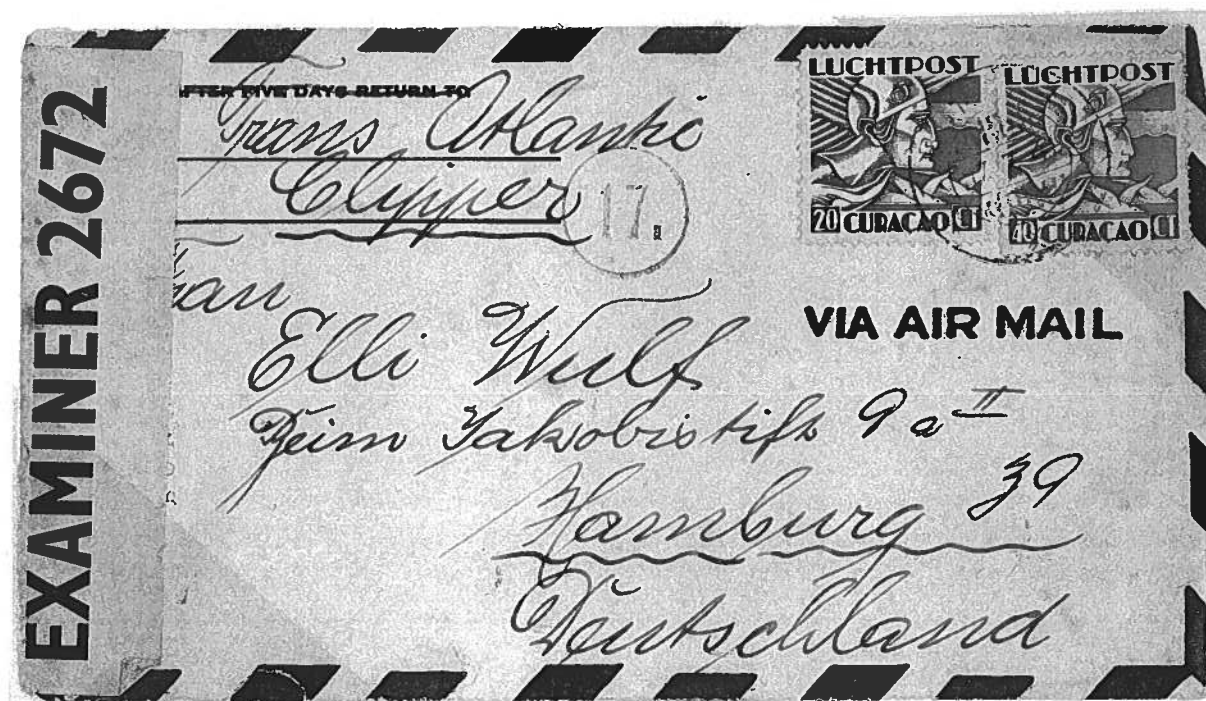 EXAMINER 2672
AFTER FIVE DAYS RETURN TO
Trans Atlantic
Clipper
17.
LUCHTPOST
20 CURAÇAO CT
LUCHTPOST
CURAÇAO CT
VIA AIR MAIL
Elli Wulf
Beim Jakobistift 9a II
Hamburg 39
Deutschland